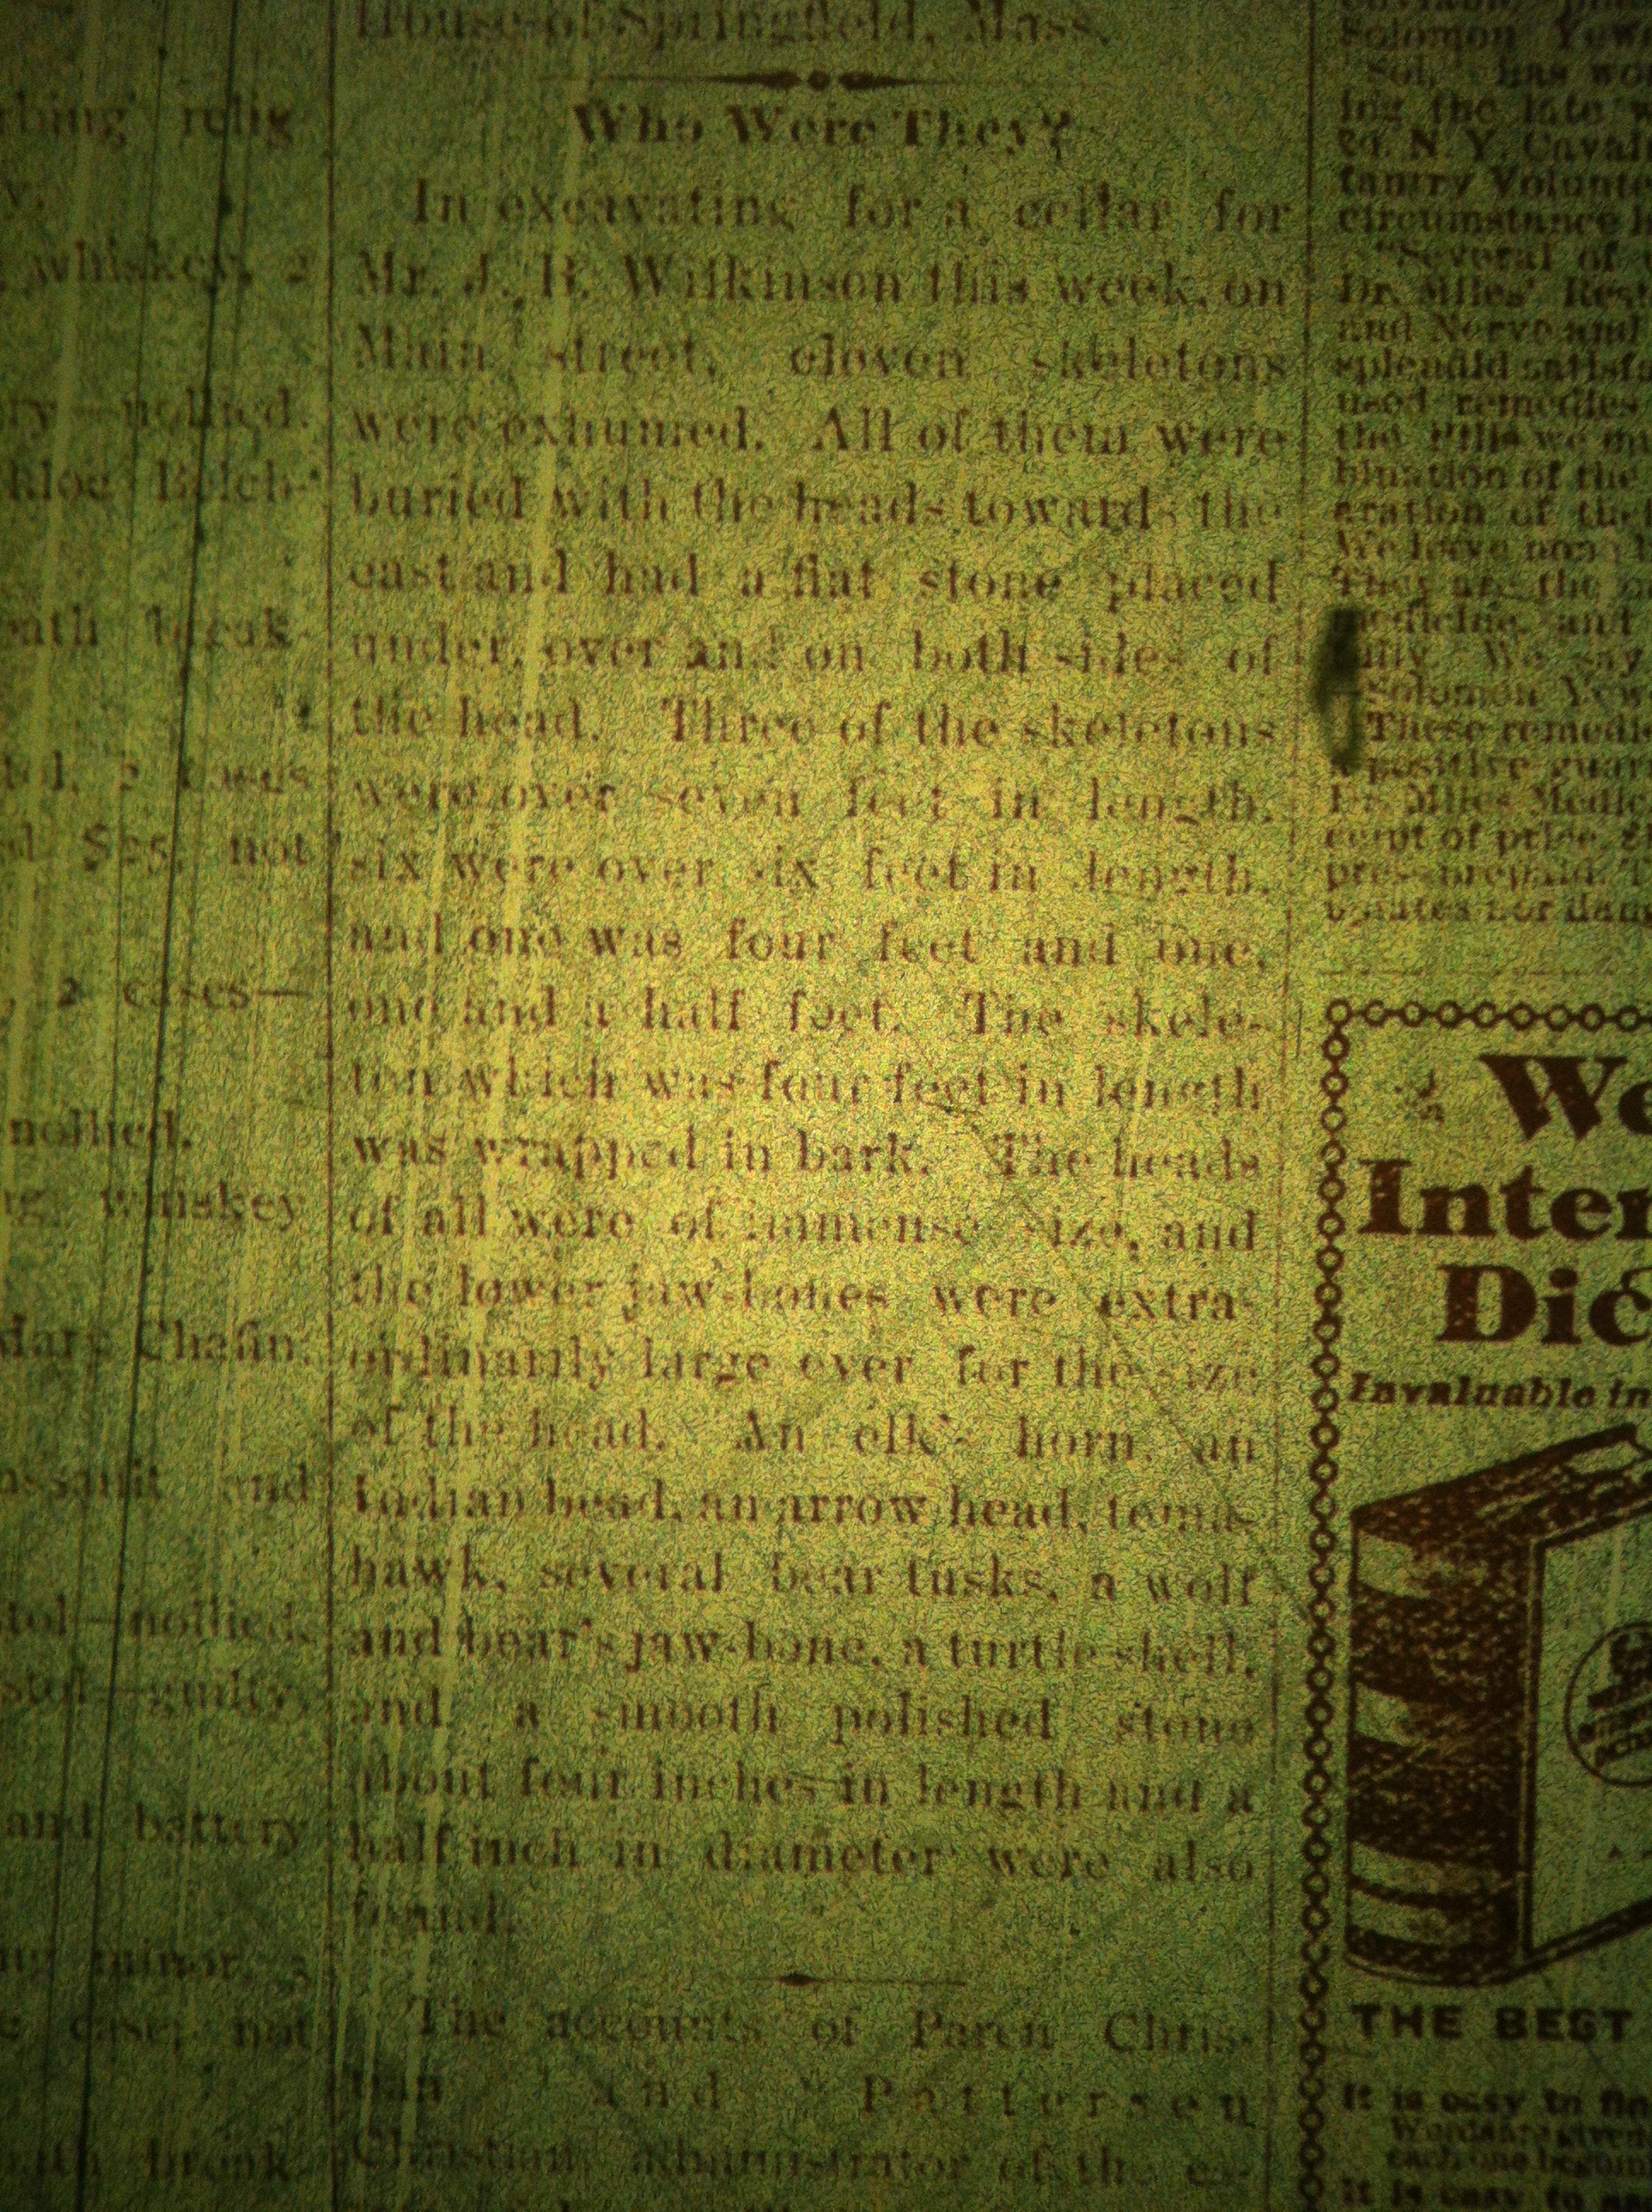 House of Springfield, Mass.
Who Were They?
In excavating for a cellar for
Mr. J. H. Wilkinson this week, on
Main street, eleven skeletons
were exhumed. All of them were
buried with the heads towards the
east and had a flat stone placed
under, over and on both sides of
the head. Three of the skeletons
were over seven feet in length,
six were over six feet in length,
and one was four feet and one,
one and a half feet. The skele-
ton which was four feet in length
was wrapped in bark. The heads
of all were of immense size, and
the lower jaw-bones were extra-
ordinarily large ever for the size
of the head. An elk's horn, an
Indian bead, an arrow head, toma-
hawk, several bear tusks, a wolf
and bear's jaw-bone, a turtle shell,
and a smooth polished stone
about four inches in length and a
half inch in diameter were also
found.
The accounts of Paren Chris-
tian and Pattersen
Christian, administrator of the es-
relig-
whiskey, 2
nollied.
2 cases
$25, not
2 cases—
nollied.
whiskey
Chafin,
assault and
nollied,
guilty,
and battery
minor, 3
case, not
Solomon
Sol. has
ing the late
N. Y.
circumstance
"Several of
Dr. Miles'
and Nerve and
splendid
used remedies
the Pills we
bination of the
eration of the
They are the
medicine, and
We say
Solomon
These
positive
Dr. Miles
cept of price,
prepaid.
opiates nor
Invaluable in
THE BEST
It is easy to
It is easy to